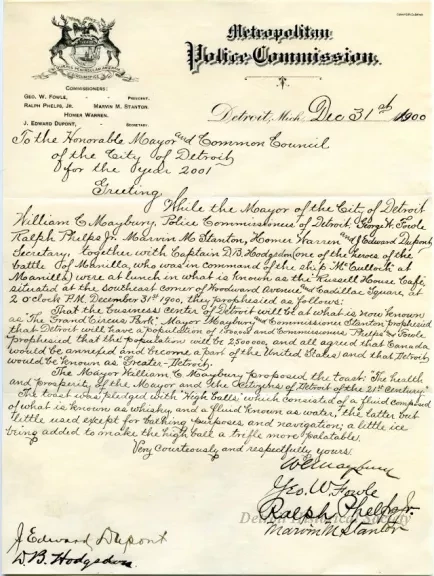 Metropolitan
Police Commission.
COMMISSIONERS:
GEO. W. FOWLE, PRESIDENT.
RALPH PHELPS, JR. MARVIN M. STANTON.
HOMER WARREN.
J. EDWARD DUPONT, SECRETARY.
Detroit, Mich. Dec 31st 1900
To the Honorable Mayor and Common Council
of the City of Detroit
for the year 2001
Greeting
While the Mayor of the City of Detroit
William C Maybury, Police Commissioners of Detroit, George W. Fowle
Ralph Phelps Jr. Marvin M. Stanton, Homer Warren and J Edward Dupont,
Secretary, together with Captain D.B. Hodgsdon (one of the heroes of the
battle of Manilla, who was in command of the ship McCulloch at
Manilla) were at lunch in what is known as the "Russell House Café,
situated at the southeast corner of Woodward Avenue and Cadillac Square, at
2 o'clock P.M. December 31st 1900, they prophesied as follows:
That the business center of Detroit will be at what is now known
as "The Grand Circus Park" Mayor Maybury and Commissioner Stanton prophesied
that Detroit will have a population of and Commissioners Phelps & Fowle
prophesied that the population will be 2500000, and all agreed that Canada
would be annexed and become a part of the United States, and that Detroit
would be known as "Greater-Detroit.
The Mayor William C Maybury proposed the toast: "The health
and prosperity of the Mayor and the Citizens of Detroit of the 21st Century."
The toast was pledged with "High Balls" which consisted of a fluid composed
of what is known as whisky, and a fluid known as water, the latter but
little used except for bathing purposes and navigation; a little ice
being added to make the high ball a trifle more palatable.
Very Courteously and respectfully yours.
W C Maybury
Geo. W Fowle
Ralph Phelps Jr.
Marvin M Stanton
J Edward Dupont
D. B. Hodgsdon
Detroit Historical Society